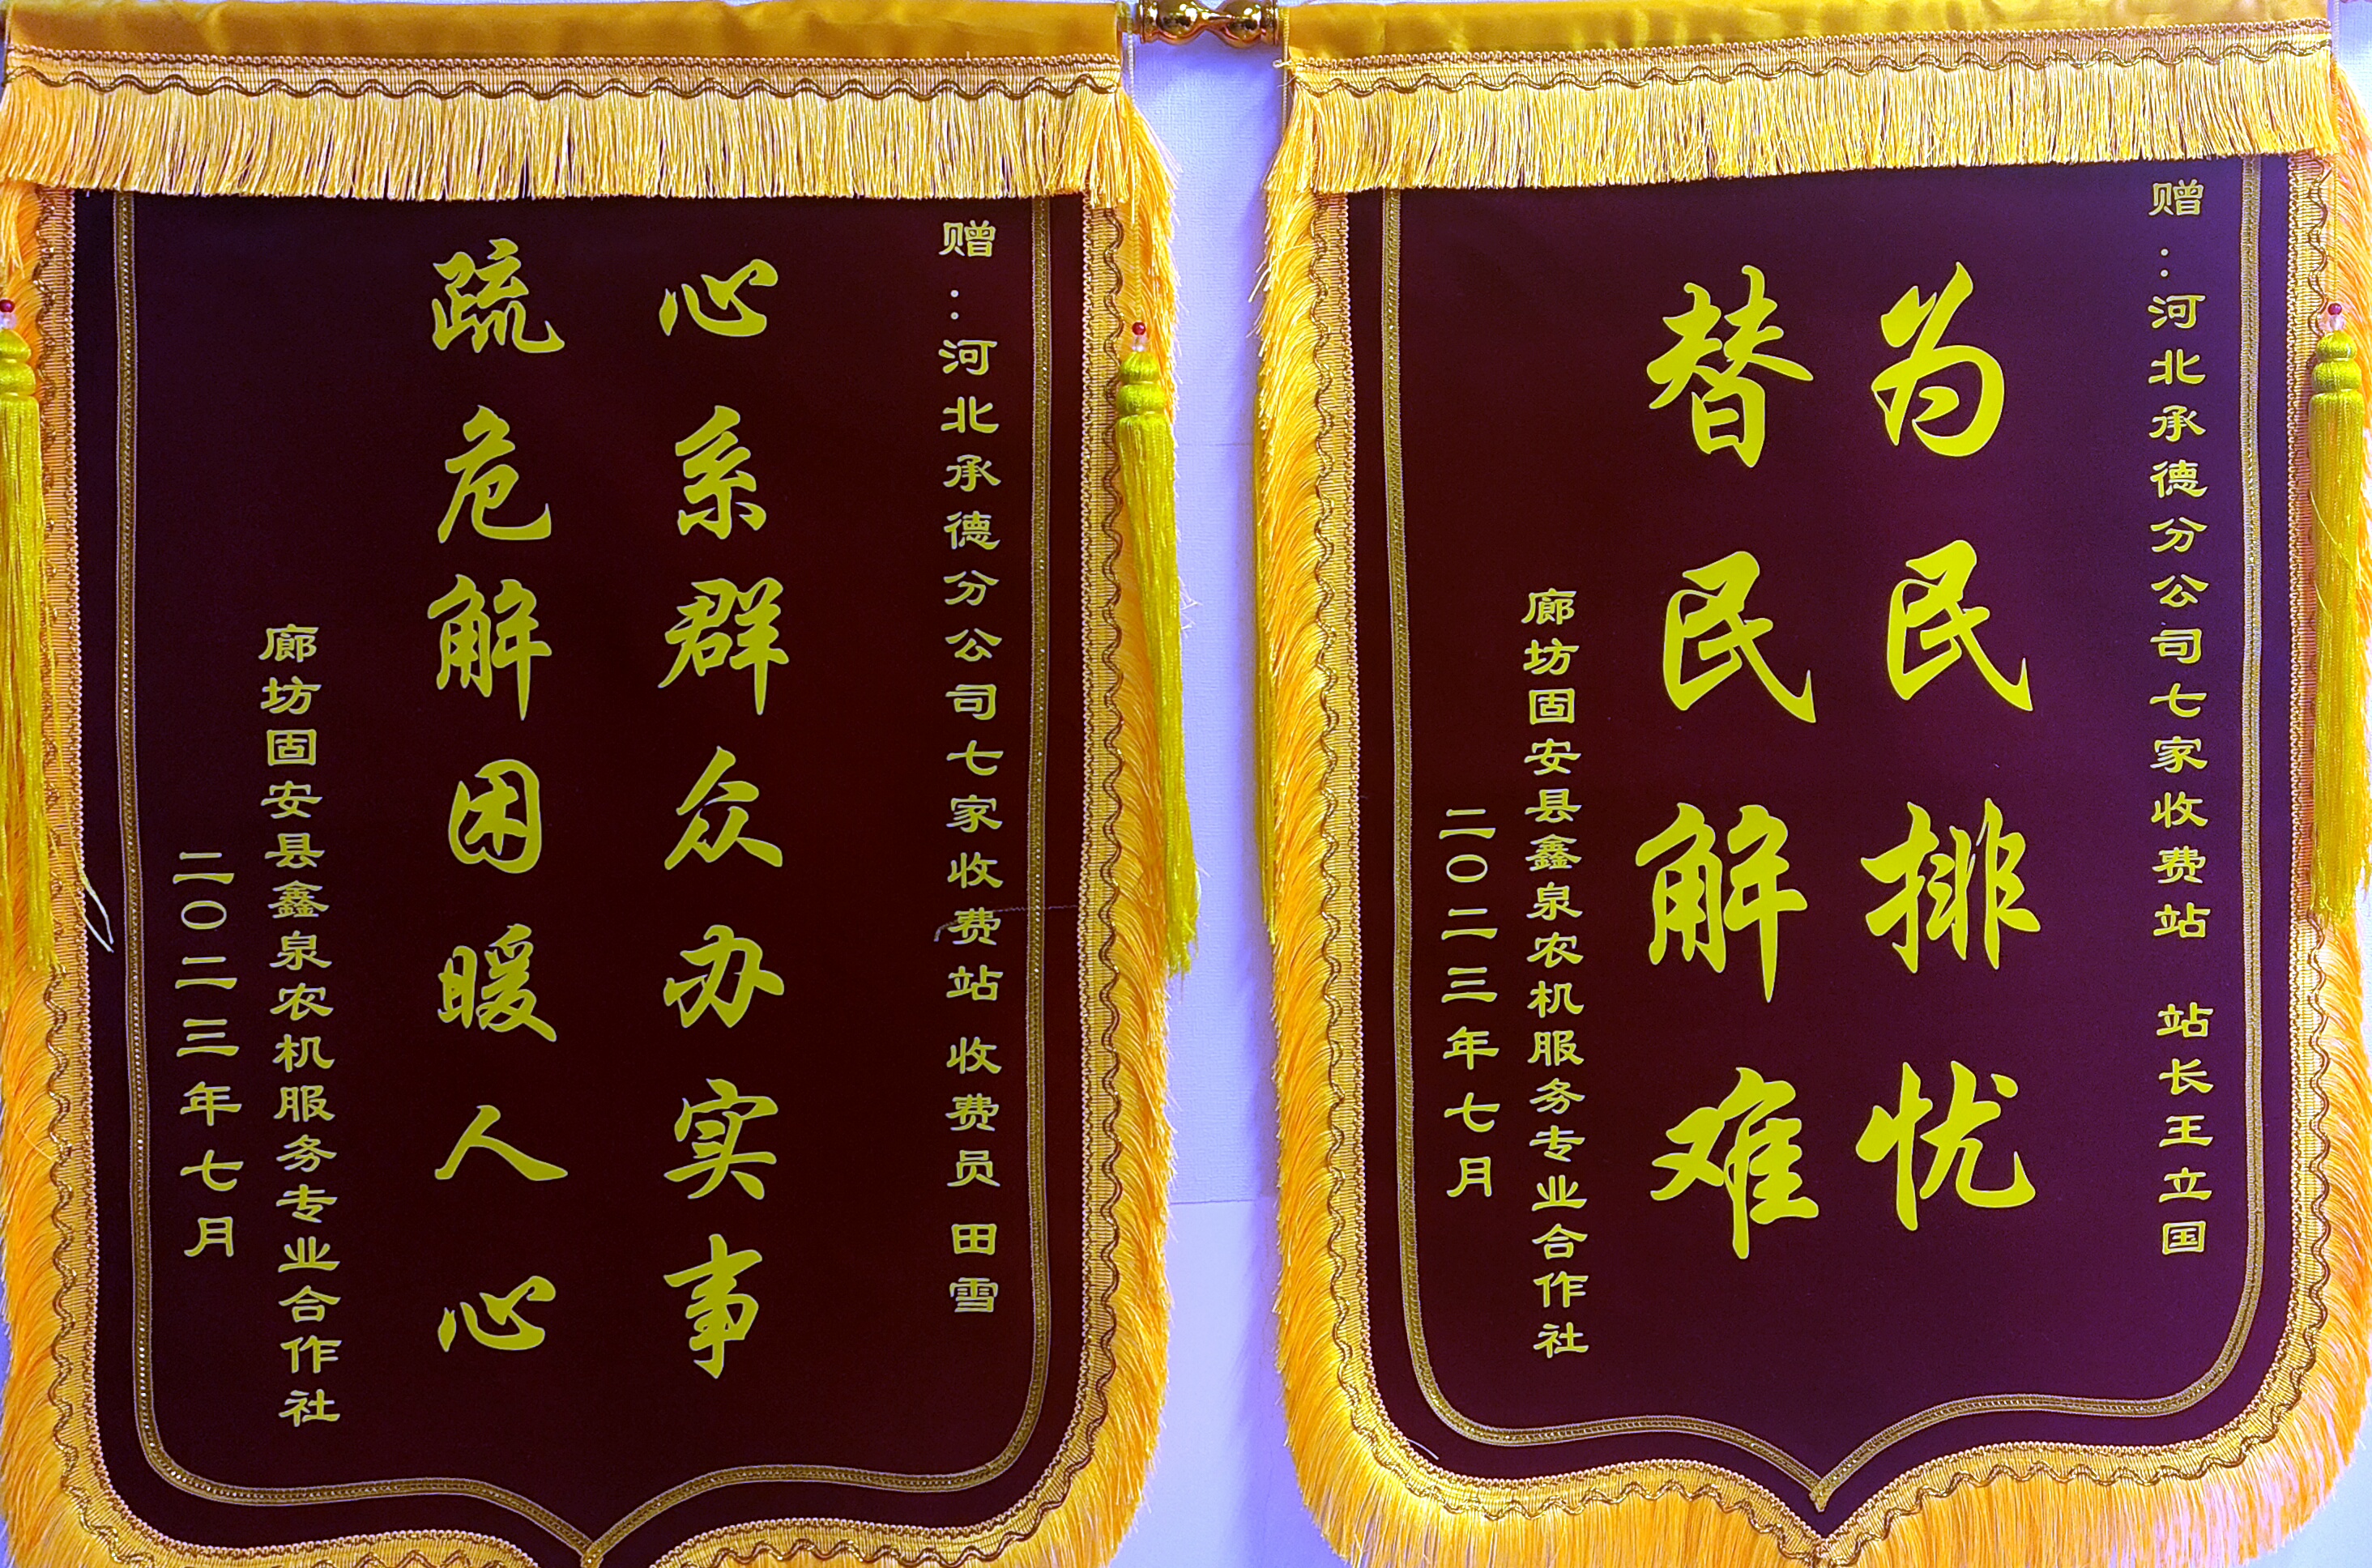 赠：河北承德分公司七家收费站 站长王立国
为民排忧
替民解难
廊坊固安县鑫泉农机服务专业合作社
二〇二三年七月
赠：河北承德分公司七家收费站 收费员 田雪
心系群众办实事
疏危解困暖人心
廊坊固安县鑫泉农机服务专业合作社
二〇二三年七月